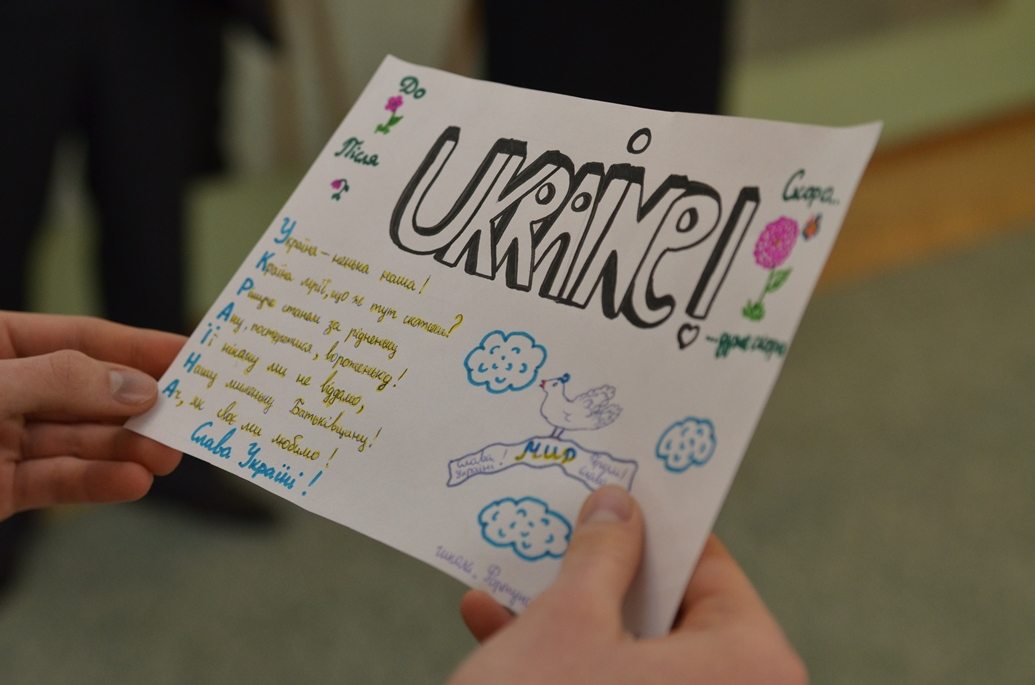 До
Після
UKRAINE!
Скоро..
...дуже скоро
Україна – ненька наша!
Країна мрії, що ж тут скажеш?
Рішуче станем за рідненьку
Ану, постережися, вороженьку!
Її нікому ми не віддамо,
Нашу миленьку Батьківщину!
Ач, як своє ми любимо!
Слава Україні!
Слава Україні!
МИР
Героям слава!
школа